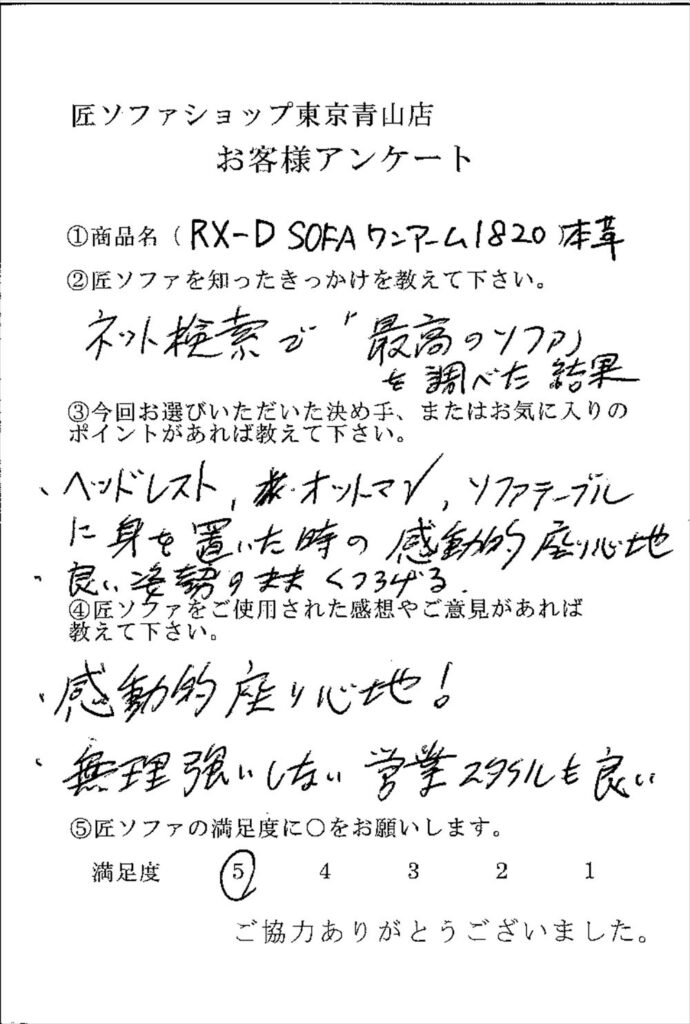 匠ソファショップ東京青山店
お客様アンケート
①商品名（RX-D SOFA ワンアーム1820）本革
②匠ソファを知ったきっかけを教えて下さい。
ネット検索で「最高のソファ」
を調べた結果
③今回お選びいただいた決め手、またはお気に入りの
ポイントがあれば教えて下さい。
、ヘッドレスト, オットマン, ソファテーブル
に身を置いた時の感動的座り心地
、良い姿勢のままくつろげる.
④匠ソファをご使用された感想やご意見があれば
教えて下さい。
、感動的座り心地!
、無理強いしない営業スタイルも良い
⑤匠ソファの満足度に○をお願いします。
満足度 5 4 3 2 1
ご協力ありがとうございました。